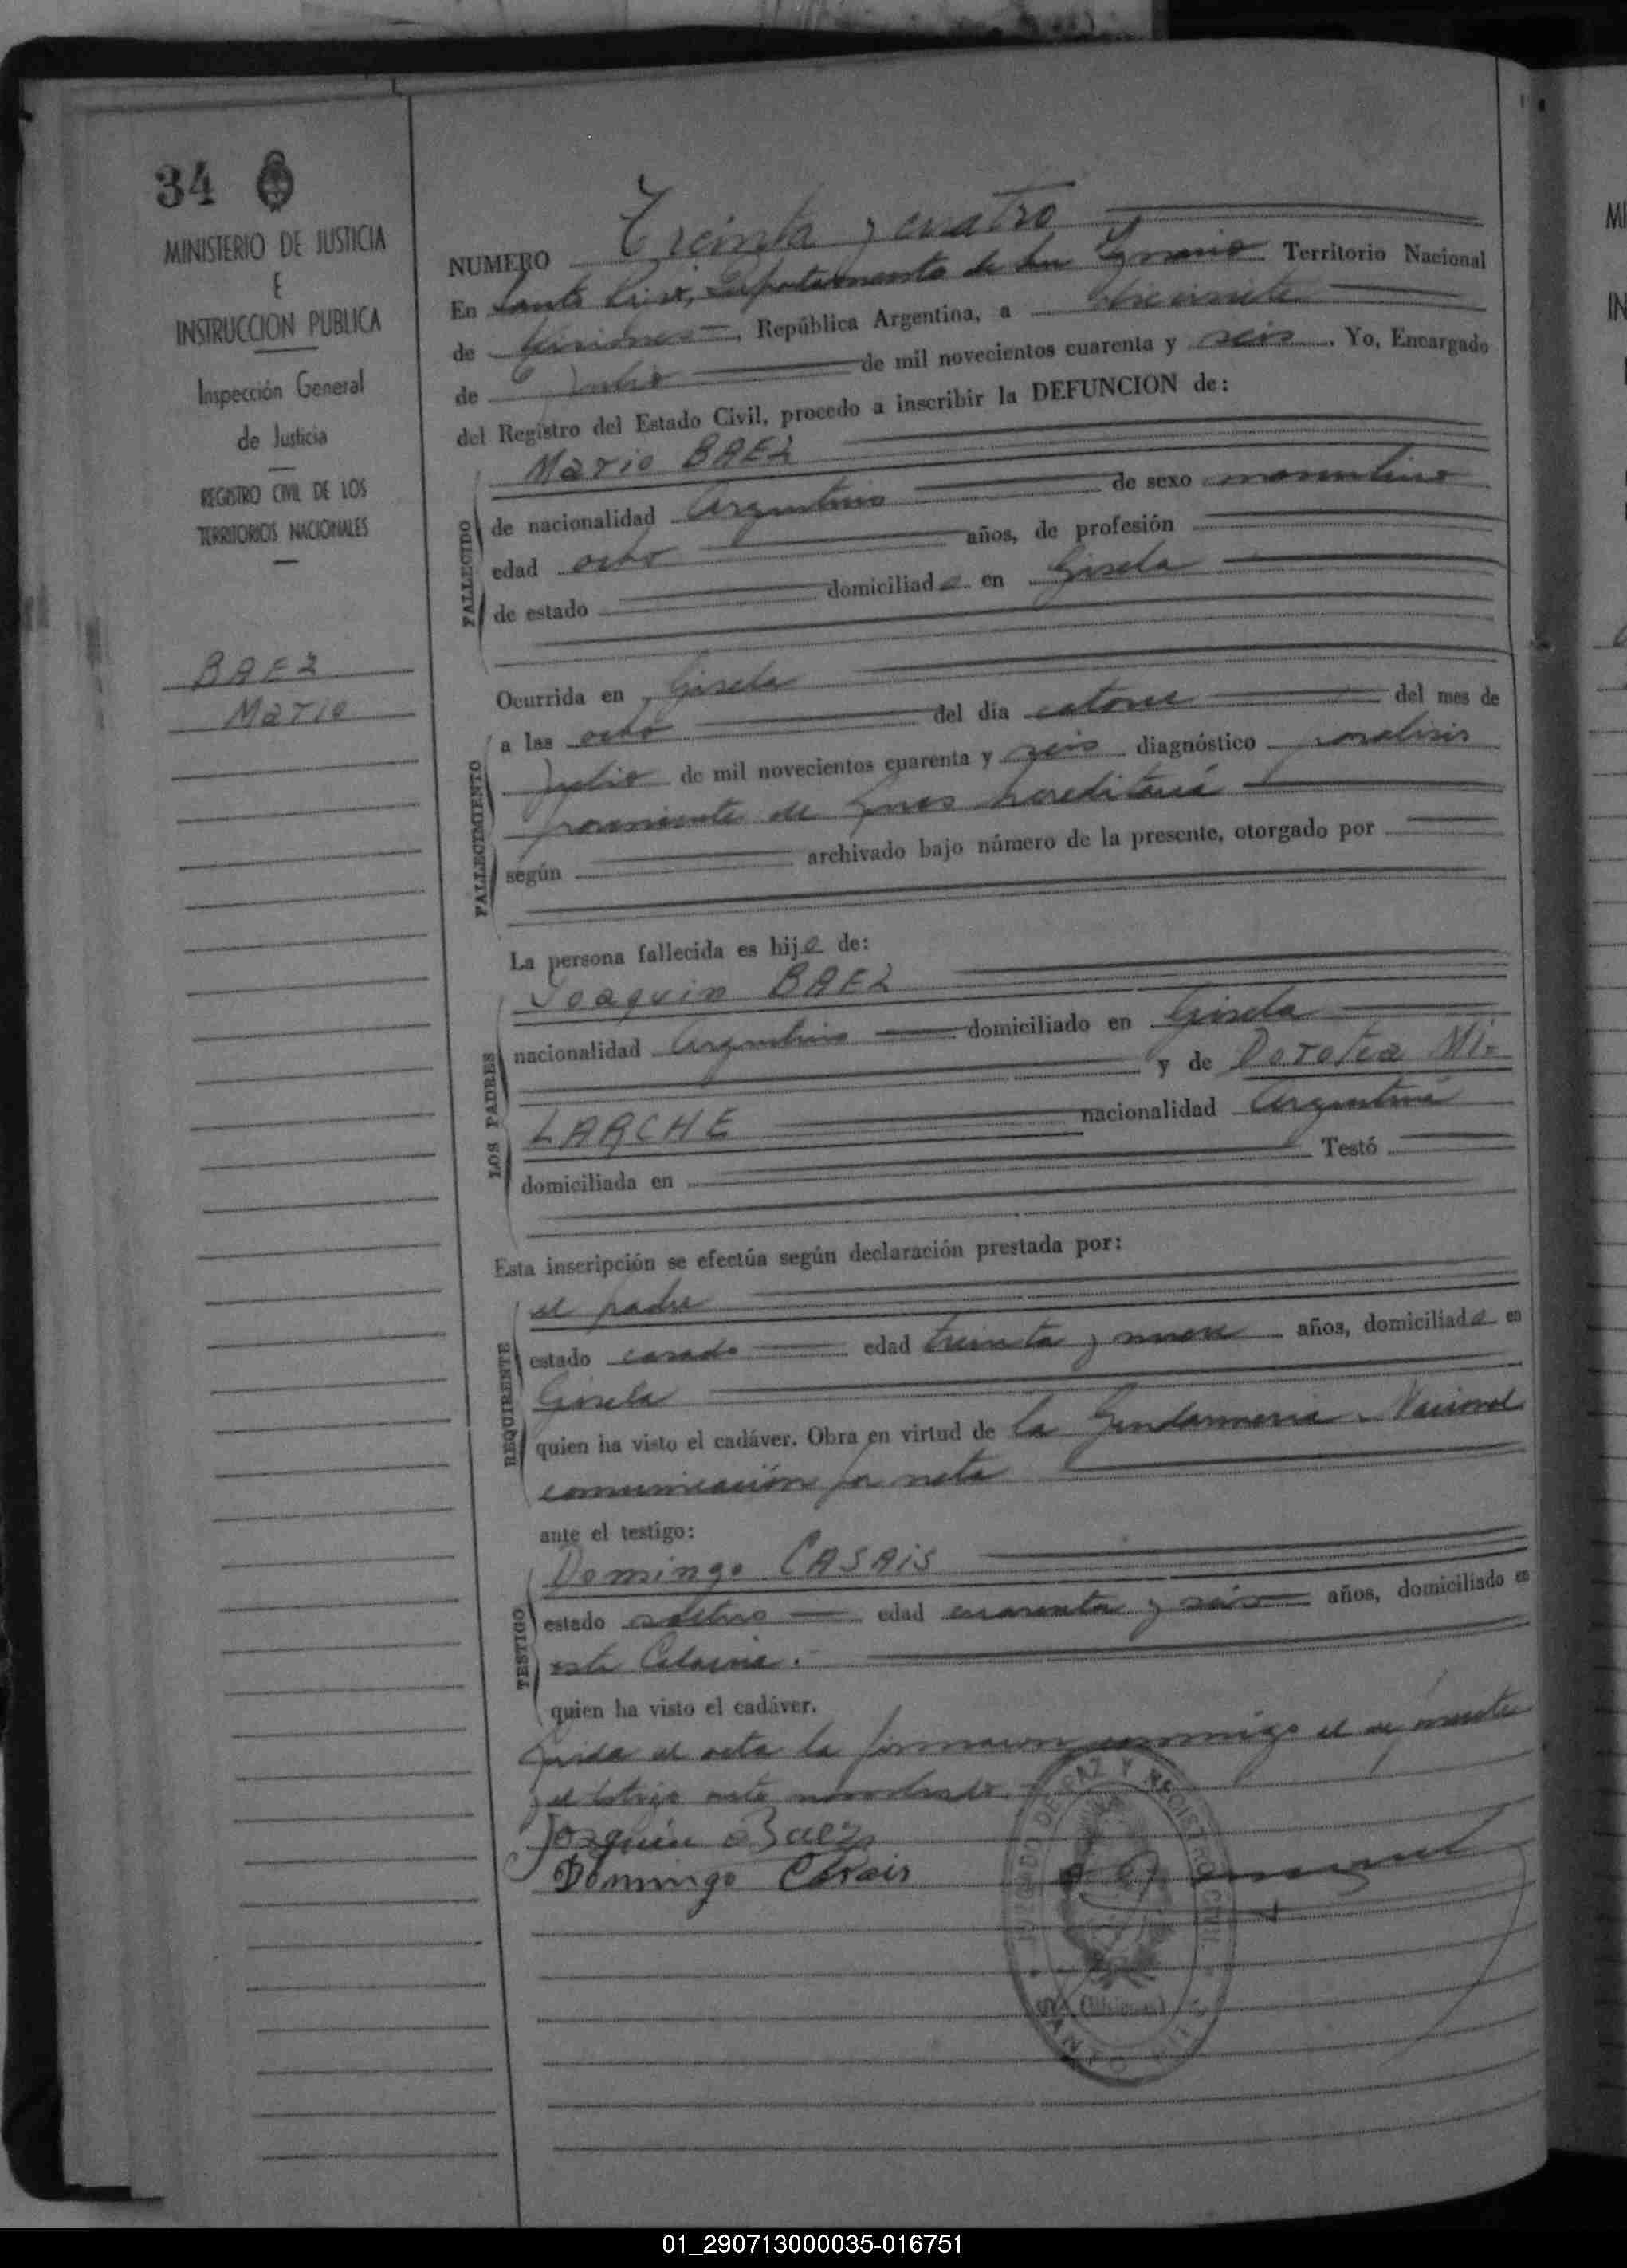 34
MINISTERIO DE JUSTICIA
E
INSTRUCCION PUBLICA
Inspección General
de Justicia
REGISTRO CIVIL DE LOS
TERRITORIOS NACIONALES
BAEZ
Mario
NUMERO Treinta y cuatro
En Santo Pipó, Departamento de San Ignacio Territorio Nacional
de Misiones, República Argentina, a diecisiete
de Julio de mil novecientos cuarenta y seis. Yo, Encargado
del Registro del Estado Civil, procedo a inscribir la DEFUNCION de:
Mario BAEZ
FALLECIDO
de nacionalidad Argentino de sexo masculino
edad ocho años, de profesión
de estado domiciliado en Gisela
Ocurrida en Gisela
FALLECIMIENTO
a las ocho del día catorce del mes de
Julio de mil novecientos cuarenta y seis diagnóstico paralisis
proveniente de hereditaria
según archivado bajo número de la presente, otorgado por
La persona fallecida es hijo de:
LOS PADRES
Joaquin BAEZ
nacionalidad Argentino domiciliado en Gisela
y de Dorotea MI=
LARCHE nacionalidad Argentina
domiciliada en Testó
Esta inscripción se efectúa según declaración prestada por:
REQUIRENTE
el padre
estado casado edad treinta y nueve años, domiciliado en
Gisela
quien ha visto el cadáver. Obra en virtud de la Gendarmeria Nacional
comunicación por nota
ante el testigo:
TESTIGO
Domingo CASAIS
estado soltero edad cuarenta y seis años, domiciliado en
esta Colonia.
quien ha visto el cadáver.
Leida el acta la firmaron conmigo el
y el testigo ante nombrado
Joaquin Baez
Domingo Casais
JUZGADO DE PAZ Y REGISTRO CIVIL
SANTO PIPO
(Misiones)
01_290713000035-016751